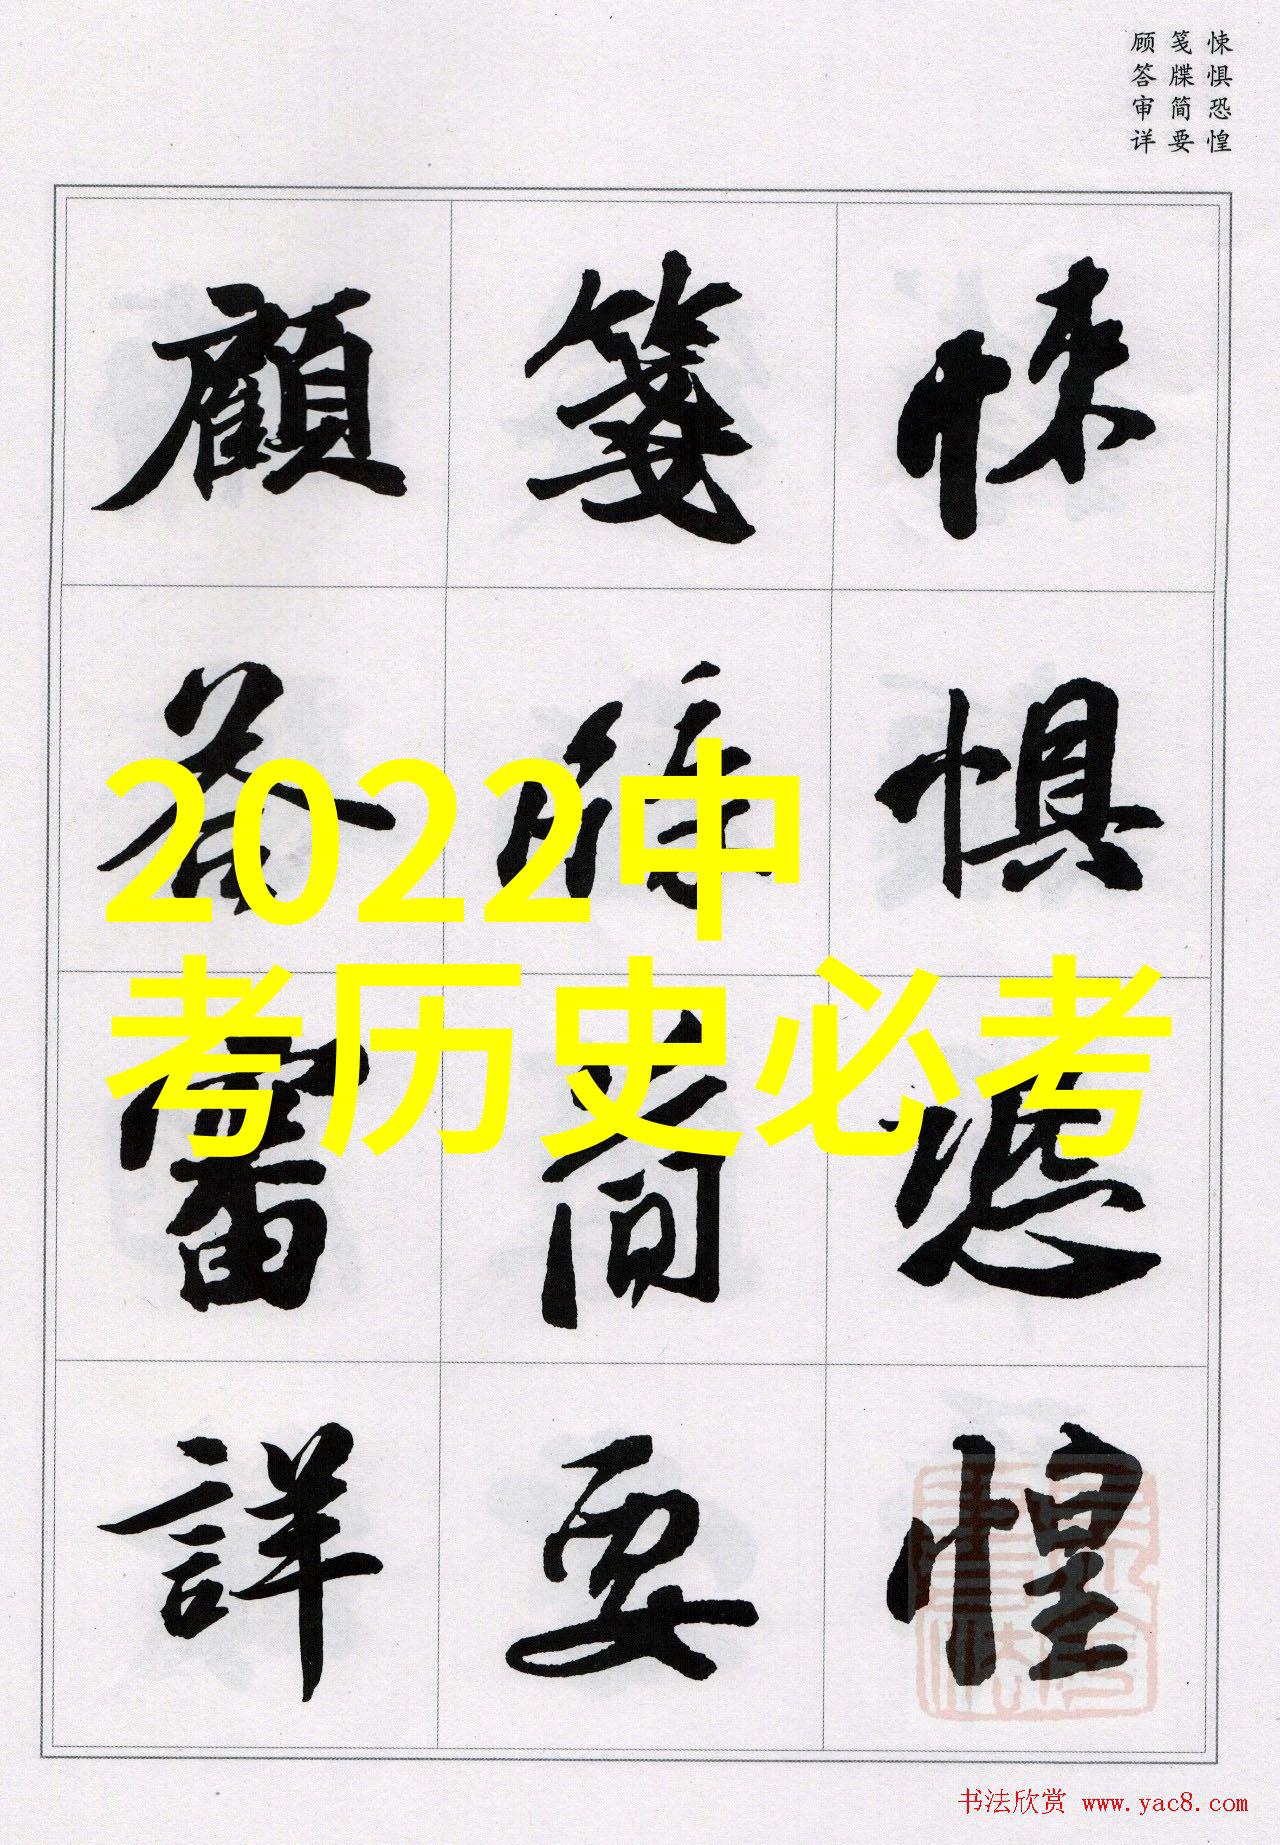 悚惧恐惶
笺牒简要
顾答审详
悚惧恐惶
笺牒简要
顧答審詳
2022中
考历史必考
书法欣赏 www.yac8.com